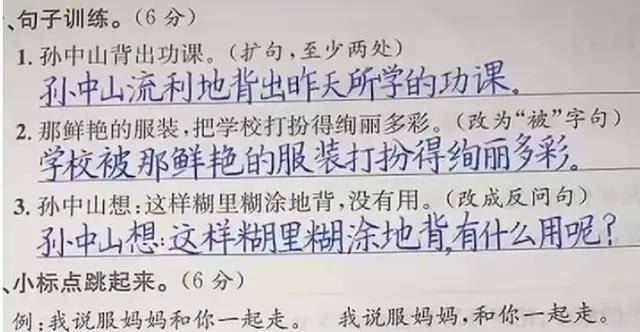 、句子训练。(6分)
1. 孙中山背出功课。(扩句,至少两处)
孙中山流利地背出昨天所学的功课。
2. 那鲜艳的服装,把学校打扮得绚丽多彩。(改为“被”字句)
学校被那鲜艳的服装打扮得绚丽多彩。
3. 孙中山想:这样糊里糊涂地背,没有用。(改成反问句)
孙中山想:这样糊里糊涂地背,有什么用呢?
、小标点跳起来。(6分)
例:我说服妈妈和你一起走。 我说服妈妈,和你一起走。